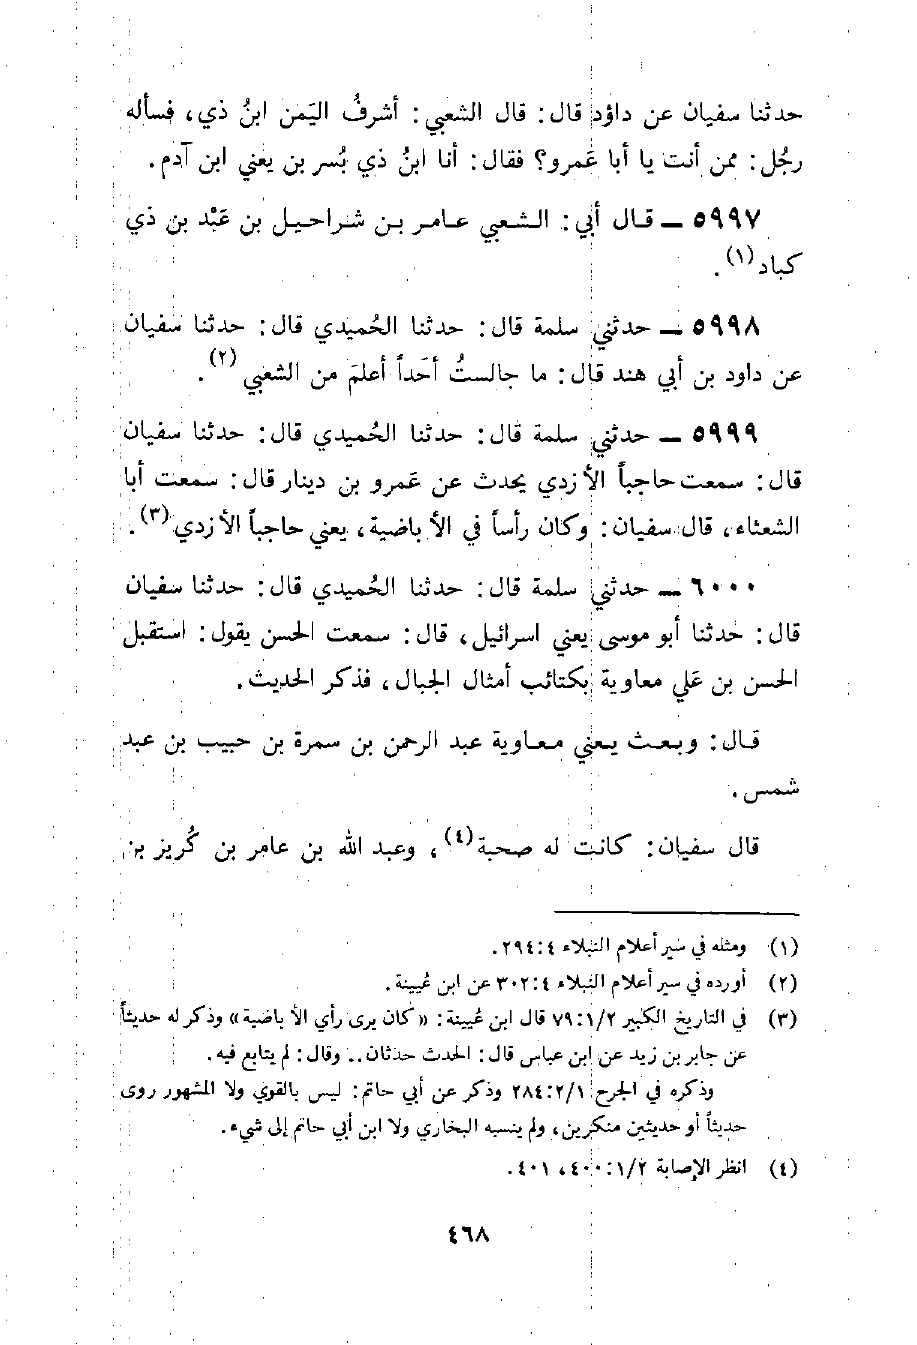 حدثنا سفيان عن داؤد قال: قال الشعبي: أشرفُ اليَمن ابنُ ذي، فسأله
رجُل: ممن أنت يا أبا عَمرو؟ فقال: أنا ابنُ ذي بُسر بن يعني ابن آدم.
٥٩٩٧ ــ قال أبي: الشعبي عامر بن شراحيل بن عَبْد بن ذي
كباد(١).
٥٩٩٨ ــ حدثني سلمة قال: حدثنا الحُميدي قال: حدثنا سفيان
عن داود بن أبي هند قال: ما جالستُ أحَداً أعلمَ من الشعبي(٢).
٥٩٩٩ ــ حدثني سلمة قال: حدثنا الحُميدي قال: حدثنا سفيان
قال: سمعت حاجباً الأزدي يحدث عن عَمرو بن دينار قال: سمعت أبا
الشعثاء، قال سفيان: وكان رأساً في الأباضية، يعني حاجباً الأزدي(٣).
٦٠٠٠ ــ حدثني سلمة قال: حدثنا الحُميدي قال: حدثنا سفيان
قال: حدثنا أبو موسى يعني اسرائيل، قال: سمعت الحسن يقول: استقبل
الحسن بن عَلي معاوية بكتائب أمثال الجبال، فذكر الحديث.
قال: وبعث يعني معاوية عبد الرحمن بن سمرة بن حبيب بن عبد
شمس.
قال سفيان: كانت له صحبة(٤)، وعبد الله بن عامر بن كُريز بن
(١) ومثله في سير أعلام النبلاء ٢٩٤:٤.
(٢) أورده في سير أعلام النبلاء ٣٠٢:٤ عن ابن عُيينة.
(٣) في التاريخ الكبير ٧٩:١/٢ قال ابن عُيينة: «كان يرى رأي الأباضية» وذكر له حديثاً
عن جابر بن زيد عن ابن عباس قال: الحدث حدثان.. وقال: لم يتابع فيه.
وذكره في الجرح ٢٨٤:٢/١ وذكر عن أبي حاتم: ليس بالقوي ولا المشهور روى
حديثاً أو حديثين منكرين، ولم ينسبه البخاري ولا ابن أبي حاتم إلى شيء.
(٤) انظر الإصابة ٤٠٠:١/٢، ٤٠١.
٤٦٨